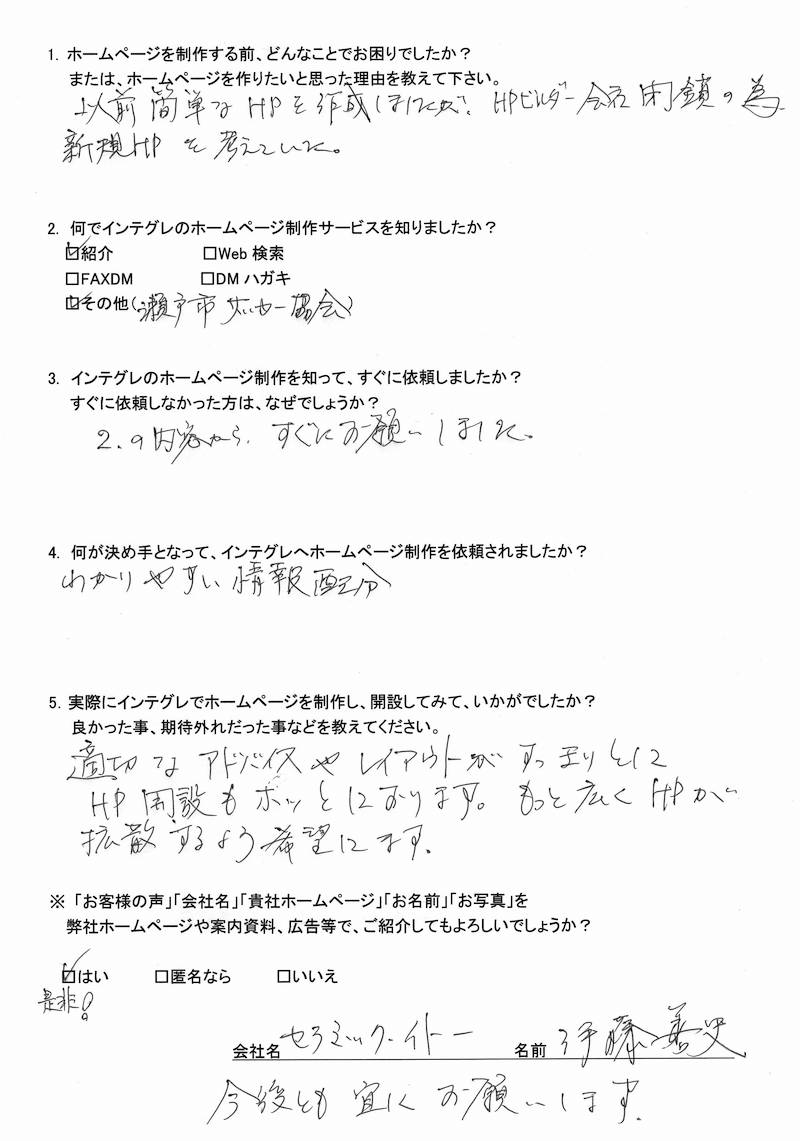 1. ホームページを制作する前、どんなことでお困りでしたか？
または、ホームページを作りたいと思った理由を教えて下さい。
以前簡単なHPを作成しましたが、HPビルダー会社閉鎖の為
新規HPを考えていた。
2. 何でインテグレのホームページ制作サービスを知りましたか？
☑紹介 □Web 検索
□FAXDM □DM ハガキ
☑その他（瀬戸市サッカー協会）
3. インテグレのホームページ制作を知って、すぐに依頼しましたか？
すぐに依頼しなかった方は、なぜでしょうか？
2.の内容から、すぐにお願いしました。
4. 何が決め手となって、インテグレへホームページ制作を依頼されましたか？
わかりやすい情報配分
5. 実際にインテグレでホームページを制作し、開設してみて、いかがでしたか？
良かった事、期待外れだった事などを教えてください。
適切なアドバイスやレイアウトがすっきりとし
HP開設もホッとしております。もっと広くHPが
拡散するよう希望します。
※ 「お客様の声」「会社名」「貴社ホームページ」「お名前」「お写真」を
弊社ホームページや案内資料、広告等で、ご紹介してもよろしいでしょうか？
☑はい □匿名なら □いいえ
是非!
会社名 セラミック・イトー 名前 伊藤善史
今後とも宜しくお願いします。